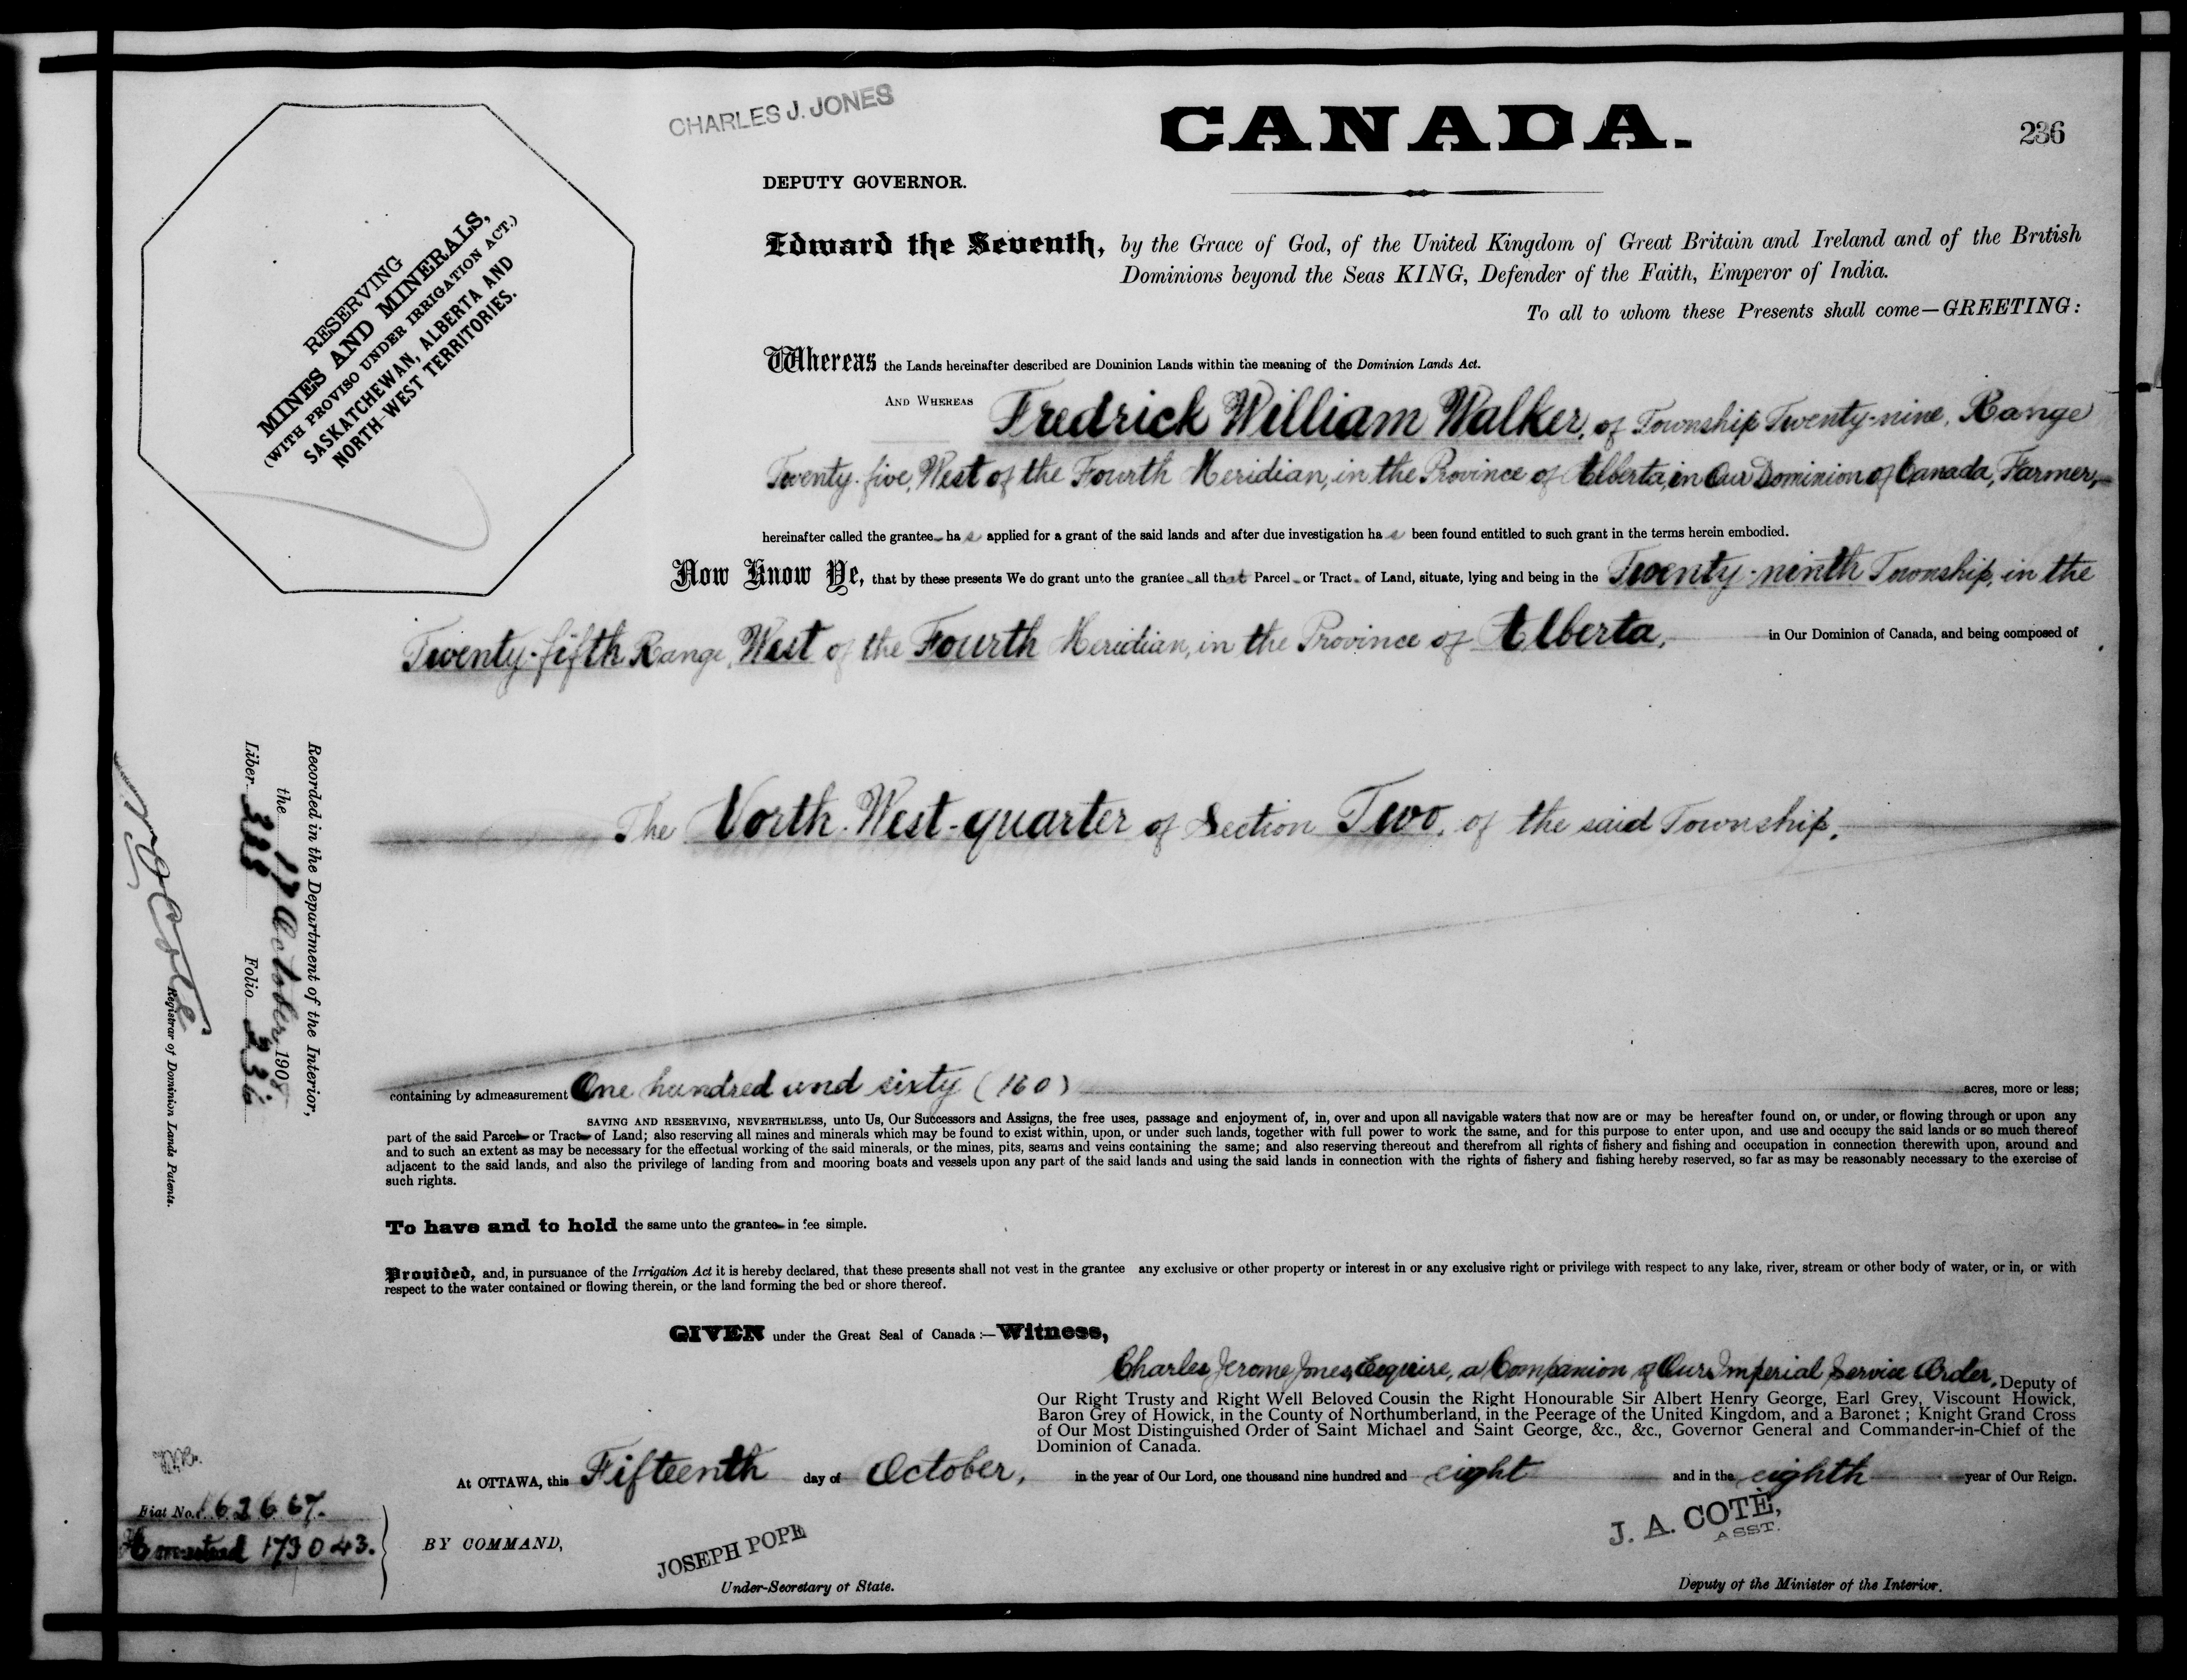 CHARLES J. JONES
CANADA.
236
DEPUTY GOVERNOR.
RESERVING
MINES AND MINERALS,
(WITH PROVISO UNDER IRRIGATION ACT.)
SASKATCHEWAN, ALBERTA AND
NORTH-WEST TERRITORIES.
Edward the Seventh, by the Grace of God, of the United Kingdom of Great Britain and Ireland and of the British
Dominions beyond the Seas KING, Defender of the Faith, Emperor of India.
To all to whom these Presents shall come—GREETING:
Whereas the Lands hereinafter described are Dominion Lands within the meaning of the Dominion Lands Act.
AND WHEREAS Fredrick William Walker, of Township Twenty-nine, Range
Twenty-five, West of the Fourth Meridian, in the Province of Alberta, in Our Dominion of Canada, Farmer,
hereinafter called the grantee has applied for a grant of the said lands and after due investigation has been found entitled to such grant in the terms herein embodied.
Now Know Ye, that by these presents We do grant unto the grantee all that Parcel or Tract of Land, situate, lying and being in the Twenty-ninth Township, in the
Twenty-fifth Range, West of the Fourth Meridian, in the Province of Alberta, in Our Dominion of Canada, and being composed of
The North-West-quarter of Section Two, of the said Township,
Recorded in the Department of the Interior,
the 17 October, 1908
Liber 338 Folio 236
N. O. Coté
Registrar of Dominion Lands Patents.
containing by admeasurement One hundred and sixty (160) acres, more or less;
SAVING AND RESERVING, NEVERTHELESS, unto Us, Our Successors and Assigns, the free uses, passage and enjoyment of, in, over and upon all navigable waters that now are or may be hereafter found on, or under, or flowing through or upon any
part of the said Parcel or Tract of Land; also reserving all mines and minerals which may be found to exist within, upon, or under such lands, together with full power to work the same, and for this purpose to enter upon, and use and occupy the said lands or so much thereof
and to such an extent as may be necessary for the effectual working of the said minerals, or the mines, pits, seams and veins containing the same; and also reserving thereout and therefrom all rights of fishery and fishing and occupation in connection therewith upon, around and
adjacent to the said lands, and also the privilege of landing from and mooring boats and vessels upon any part of the said lands and using the said lands in connection with the rights of fishery and fishing hereby reserved, so far as may be reasonably necessary to the exercise of
such rights.
To have and to hold the same unto the grantee in fee simple.
Provided, and, in pursuance of the Irrigation Act it is hereby declared, that these presents shall not vest in the grantee any exclusive or other property or interest in or any exclusive right or privilege with respect to any lake, river, stream or other body of water, or in, or with
respect to the water contained or flowing therein, or the land forming the bed or shore thereof.
GIVEN under the Great Seal of Canada:—Witness,
Charles Jerome Jones, Esquire, a Companion of Our Imperial Service Order, Deputy of
Our Right Trusty and Right Well Beloved Cousin the Right Honourable Sir Albert Henry George, Earl Grey, Viscount Howick,
Baron Grey of Howick, in the County of Northumberland, in the Peerage of the United Kingdom, and a Baronet; Knight Grand Cross
of Our Most Distinguished Order of Saint Michael and Saint George, &c., &c., Governor General and Commander-in-Chief of the
Dominion of Canada.
At OTTAWA, this Fifteenth day of October, in the year of Our Lord, one thousand nine hundred and eight and in the eighth year of Our Reign.
Fiat No. 162667.
Homestead 173043.
BY COMMAND,
JOSEPH POPE
Under-Secretary of State.
J. A. COTÉ,
ASST.
Deputy of the Minister of the Interior.